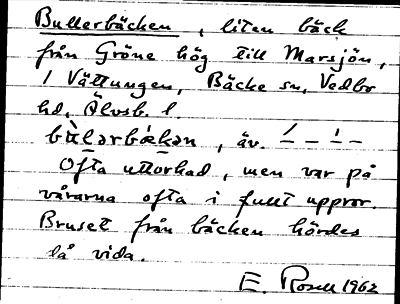 Bullerbäcken, liten bäck
från Gröne hög till Marsjön,
i Vättungen, Bäcke sn, Vedbo
hd, Älvsb. l.
bùlərbækən, äv.
Ofta uttorkad, men var på
vårarna ofta i fullt uppror.
Bruset från bäcken hördes
då vida.
E. Rosell 1962